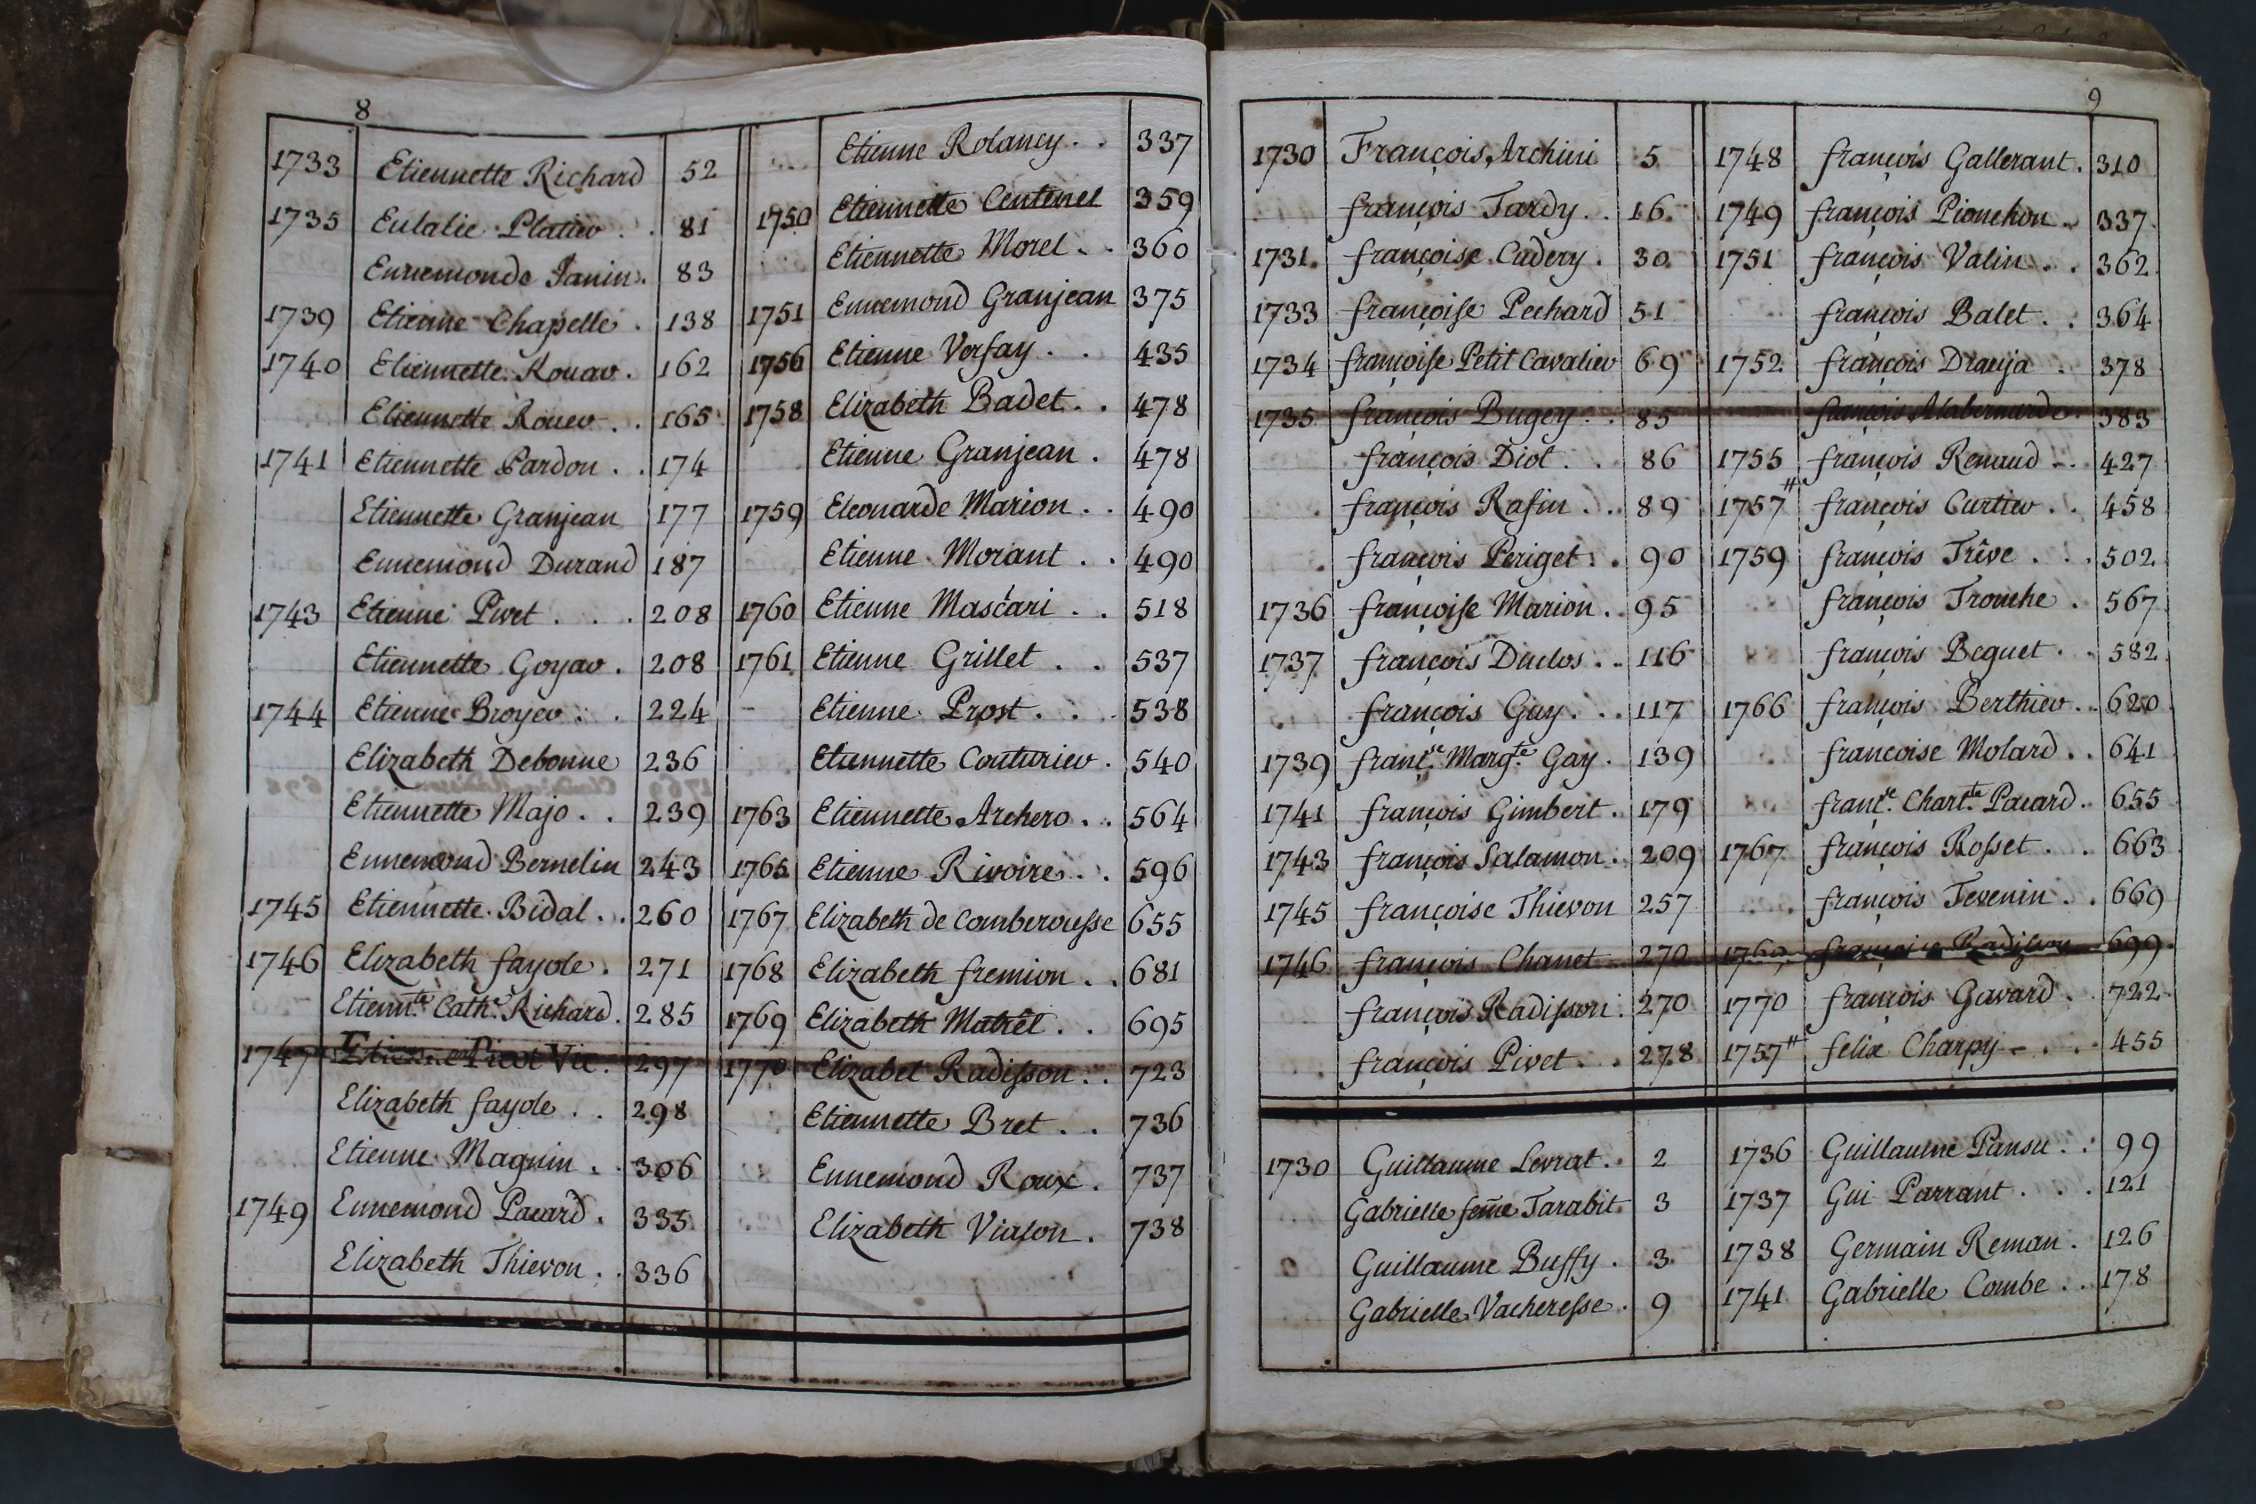 8
1733 Etiennette Richard 52
1735 Eulalie Platier . . 81
Ennemonde Janin . 83
1739 Etienne Chapelle . 138
1740 Etiennette Rouar . 162
Etiennette Rouer . . 165
1741 Etiennette Pardon . . 174
Etiennette Granjean 177
Ennemond Durand 187
1743 Etienne Pivet . . . 208
Etiennette Goyar . 208
1744 Etienne Broyer . . 224
Elizabeth Debonne 236
Etiennette Majo . . 239
Ennemond Bernelin 243
1745 Etiennette Bidal . . 260
1746 Elizabeth fayole . 271
Etiennte Cathe Richard . 285
1747 Etienne Picot Vic . 297
Elizabeth fayole . . 298
Etienne Magnin . . 306
1749 Ennemond Pacard . 335
Elizabeth Thievon . . 336
Etienne Rolancy . . 337
1750 Etiennette Centenet 359
Etiennette Morel . . 360
1751 Ennemond Granjean 375
1756 Etienne Versay . . 435
1758 Elizabeth Badet . . 478
Etienne Granjean . 478
1759 Eleonarde Marion . . 490
Etienne Morant . . 490
1760 Etienne Mascari . . 518
1761 Etienne Grillet . . 537
Etienne Prost . . . 538
Etiennette Couturier . 540
1763 Etiennette Archero . . 564
1765 Etienne Rivoire . . 596
1767 Elizabeth de Comberousse 655
1768 Elizabeth fremion . . 681
1769 Elizabeth Matrêl . . 695
1770 Elizabet Radisson . . 723
Etiennette Bret . . 736
Ennemond Roux . 737
Elizabeth Vialon . 738
9
1730 François Archini 5
françois Tardy . . 16
1731 françoise Cadery . 30
1733 françoise Pechard 51
1734 françoise Petit Cavalier 69
1735 françois Bugey . . 85
françois Diot . . 86
françois Rafin . . 89
françois Periget . . 90
1736 françoise Marion . . 95
1737 françois Duclos . . 116
françois Guy . . . 117
1739 françse Margte Gay . 139
1741 françois Gimbert . 179
1743 françois Salamon . 209
1745 françoise Thievon 257
1746 françois Chanet 270
françois Radisson . 270
françois Pivet . . 278
1748 françois Gallerant . 310
1749 françois Pionchon . . 337
1751 françois Valin . . . 362
françois Balet . . 364
1752 françois Dranja . 378
françois 383
1755 françois Renaud . . 427
1757 # françois Curtier . . 458
1759 françois Trêve . . . 502
françois Tronche . 567
françois Beguet . . 582
1766 françois Berthier . . 620
françoise Molard . . 641
françse Chartte Pacard . . 655
1767 françois Rosset . . 663
françois Tevenin . . 669
1769 françoise Radisson 699
1770 françois Gavard . . 722
1757 # felix Charpy . . . 455
1730 Guillaume Levrat . . 2
Gabrielle fem̃e Tarabit . 3
Guillaume Buffy . 3
Gabrielle Vacheresse . 9
1736 Guillaume Pansu . . 99
1737 Gui Parrant . . . 121
1738 Germain Reman . 126
1741 Gabrielle Combe . . 178